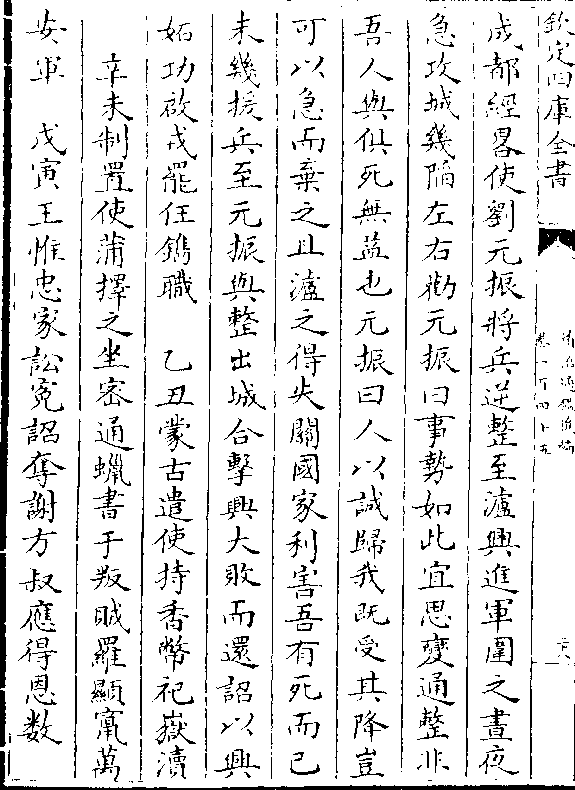 欽定四庫全書
成都經畧使劉元振將兵逆整至瀘興進軍圍之晝夜
急攻城幾陷左右勸元振曰事勢如此宜思變通整非
吾人與俱死無益也元振曰人以誠歸我既受其降豈
可以急而棄之且瀘之得失關國家利害吾有死而已
未幾援兵至元振與整出城合擊興大敗而還詔以興
妬功啟戎罷任鐫職　乙丑蒙古遣使持香幣祀嶽瀆
辛未制置使蒲擇之坐密通蠟書于叛賊羅顯竄萬
安軍　戊寅王惟忠家訟冤詔奪謝方叔應得恩数